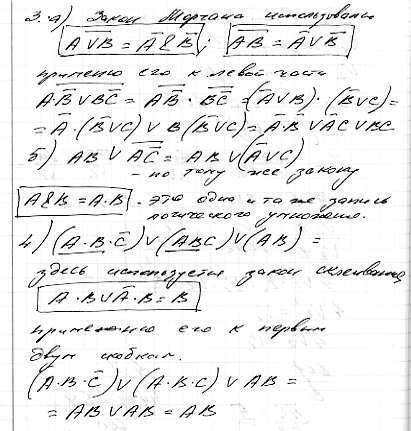 3. а) Закон Моргана использовали
A̅ ̅V̅ ̅B̅ = A̅ & B̅ ; A̅B̅ = A̅ V B̅
применю его к левой части
A·B̅ V B̅C = A̅B̅ · B̅C̅ = (A̅ V B) · (B̅ V C) =
= A̅ · (B̅ V C) V B (B̅ V C) = A̅·B̅ V A̅C V BC
б) AB V A̅C̅ = AB V (A̅ V C)
- по тому же закону
A & B = A·B - это одна и та же запись
логического умножения.
4) (A·B·C̅) V (ABC) V (AB) =
здесь используется закон склеивания
A·B V A̅·B = B
применяю его к первым
двум скобкам.
(A·B·C̅) V (A·B·C) V AB =
= AB V AB = AB